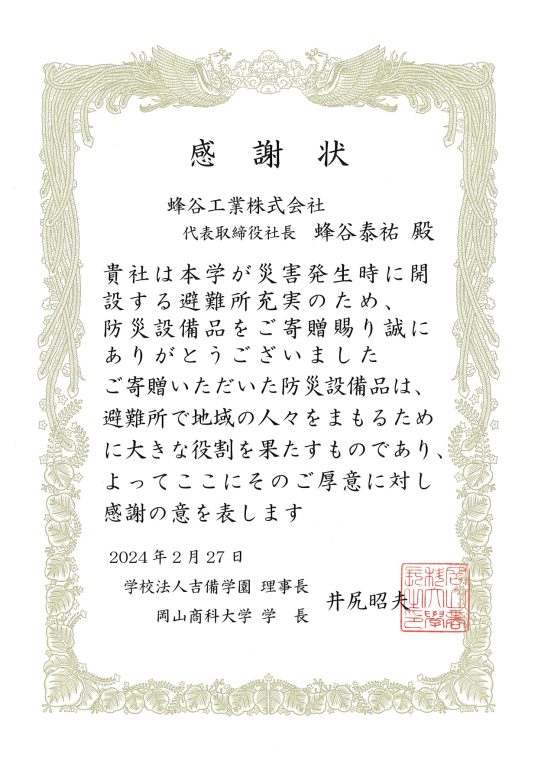 感謝状
蜂谷工業株式会社
代表取締役社長 蜂谷泰祐 殿
貴社は本学が災害発生時に開
設する避難所充実のため、
防災設備品をご寄贈賜り誠に
ありがとうございました
ご寄贈いただいた防災設備品は、
避難所で地域の人々をまもるため
に大きな役割を果たすものであり、
よってここにそのご厚意に対し
感謝の意を表します
2024年2月27日
学校法人吉備学園 理事長
岡山商科大学 学 長
井尻昭夫